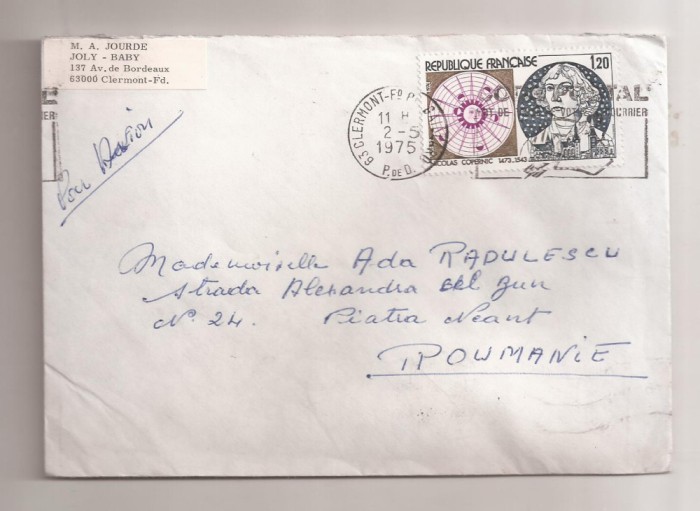 M. A. JOURDE
JOLY - BABY
137 Av. de Bordeaux
63000 Clermont-Fd.
Pour Avion
REPUBLIQUE FRANÇAISE
1,20
NICOLAS COPERNIC 1473-1543
63 CLERMONT-Fd P
11 H
2 - 5
1975
P. DE D.
CO POSTAL
ET DE
RRIER
E
IER
Mademoiselle Ada RADULESCU
Strada Alexandru cel Bun
No. 24. Piatra Neant
ROUMANIE